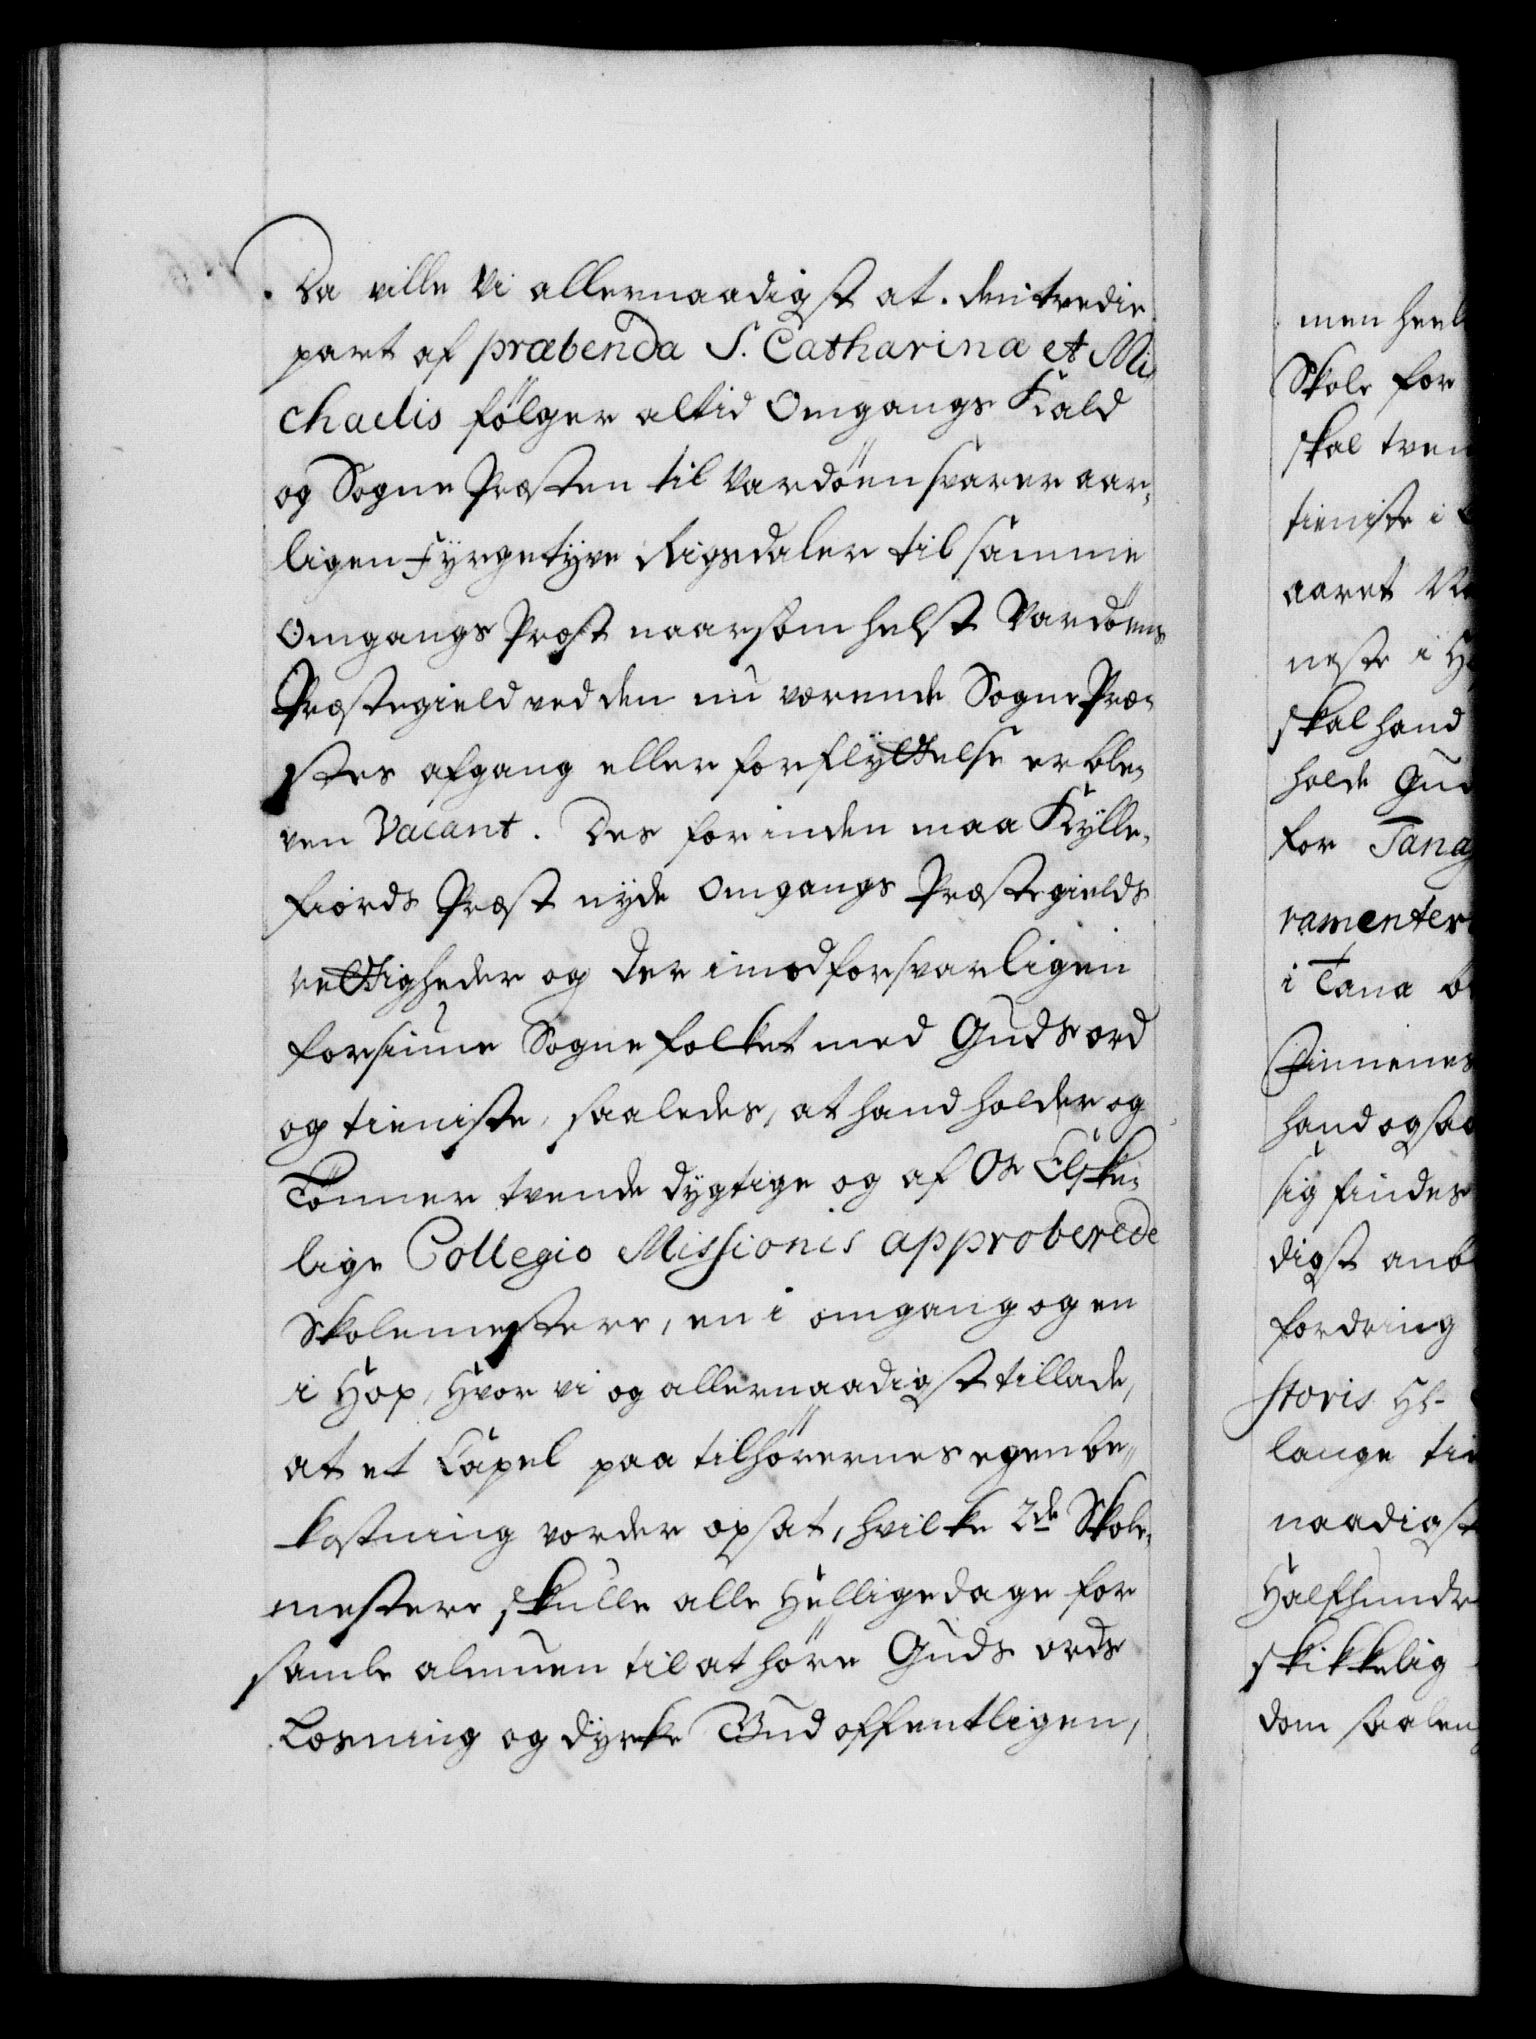 Da ville Vi allernaadigst at den tredie
part af præbenda S. Catharinæ et Mi
chaelis fölger altid Omgangs Kald
og Sogne Præsten til Vardöen svarer aar,
ligen Fyrgetyve Rigsdaler til samme
Omgangs Præst naarsomhelst Vardöens
Præstegield ved den nu værende Sogne Præ,
stes afgang eller forflyttelse er ble,
ven Vacant. Des forinden maa Kylle,
fiords Præst nyde Omgangs Præstegields
rettigheder og der imod forsvarligen
forsiune Sognefolket med Guds ord
og tieniste, saaledes, at hand holder og
Lönner tvende dygtige og af Os Elske,
lige Collegio Missionis approberede
Skolemestere, en i omgang og en
i Hop, Hvor vi og allernaadigst tillade,
at et Capel paa tilhörernes egen be,,
kostning vorder opsat, hvilke 2de Skole,
mestere skulle alle Helligedage for
samle almuen til at höre Guds ords
Læsning og dyrke Gud offentligen,
men heel
Skole for
skal tven
tieniste i
aaret
neste i
skal hand
holde Gud
for Tana
ramenter
i Tana
Finnenes
hand ogsaa
sig findes
digst anb
fordring
storis
lange tie
naadigst
Halfhundr
skikkelig
dom saalen